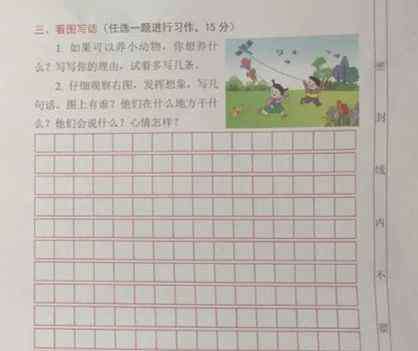 三、看图写话（任选一题进行习作，15 分）
1. 如果可以养小动物，你想养什
么？写写你的理由，试着多写几条。
2. 仔细观察右图，发挥想象，写几
句话。图上有谁？他们在什么地方干什
么？他们会说什么？心情怎样？
密
封
线
内
不
要